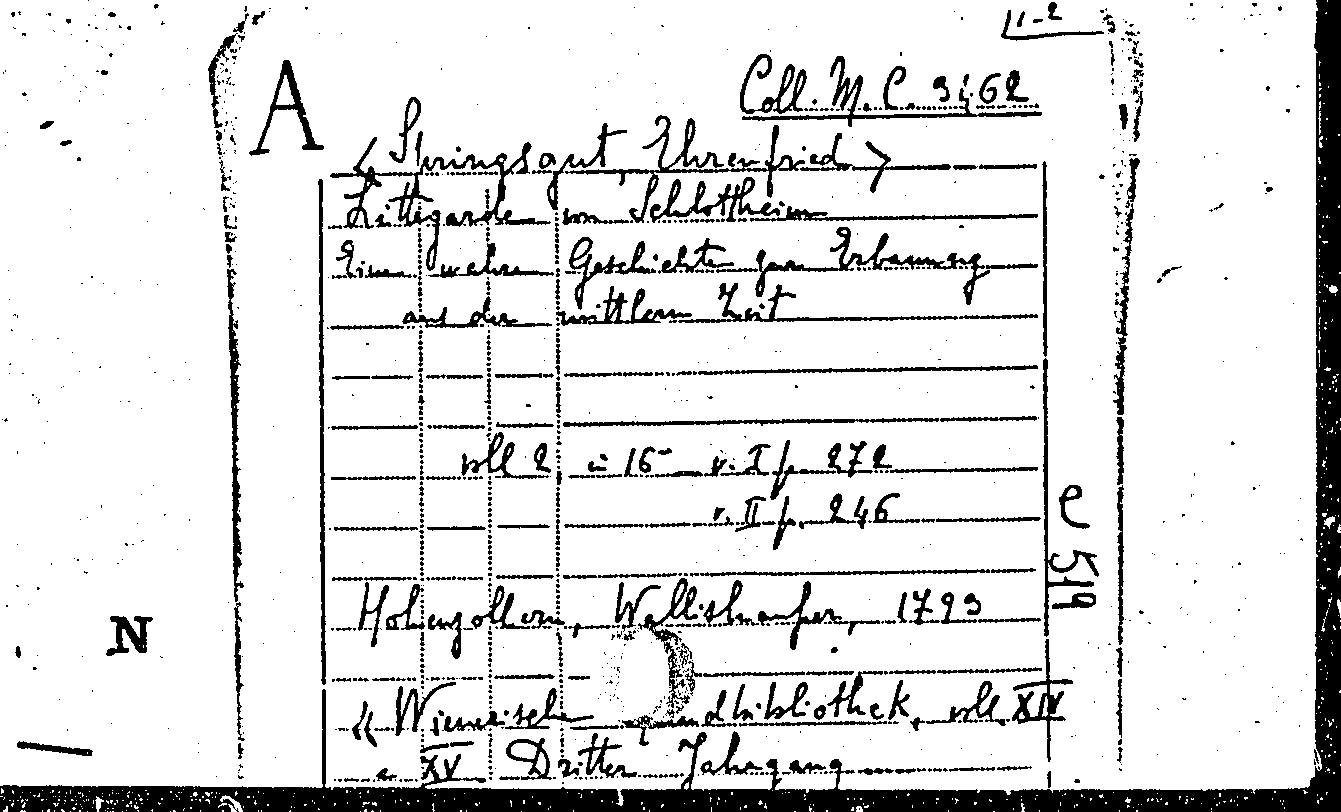 11-2
A
Coll. M. C. 3462
< Springsgut, Ehrenfried >
Littegarde von Schlottheim
Eine wahre Geschichte zur Erbauung
aus der mittlern Zeit
voll 2 in 16° v. I p. 272
v. II p. 246
e 519
Hohenzollern, Wallishausser, 1793
N
« Wienerische Landbibliothek, voll. XIV
e XV Dritter Jahrgang